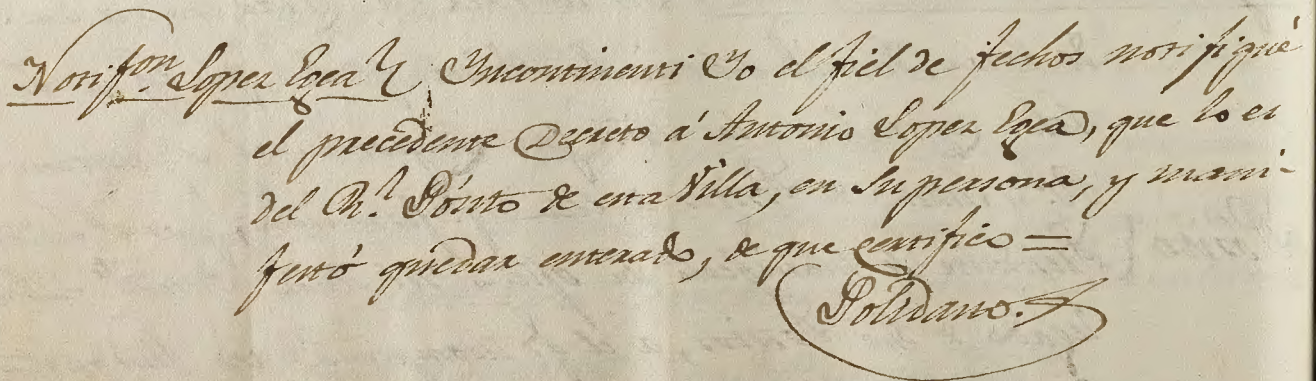 Notif.on Lopez Egea Incontinenti Yo el fiel de fechos notifiqué
el precedente Decreto á Antonio Lopez Egea, que lo es
del Rl. Pósito de esta Villa, en su persona, y mani-
festó quedar enterado, de que certifico =
Polidano.